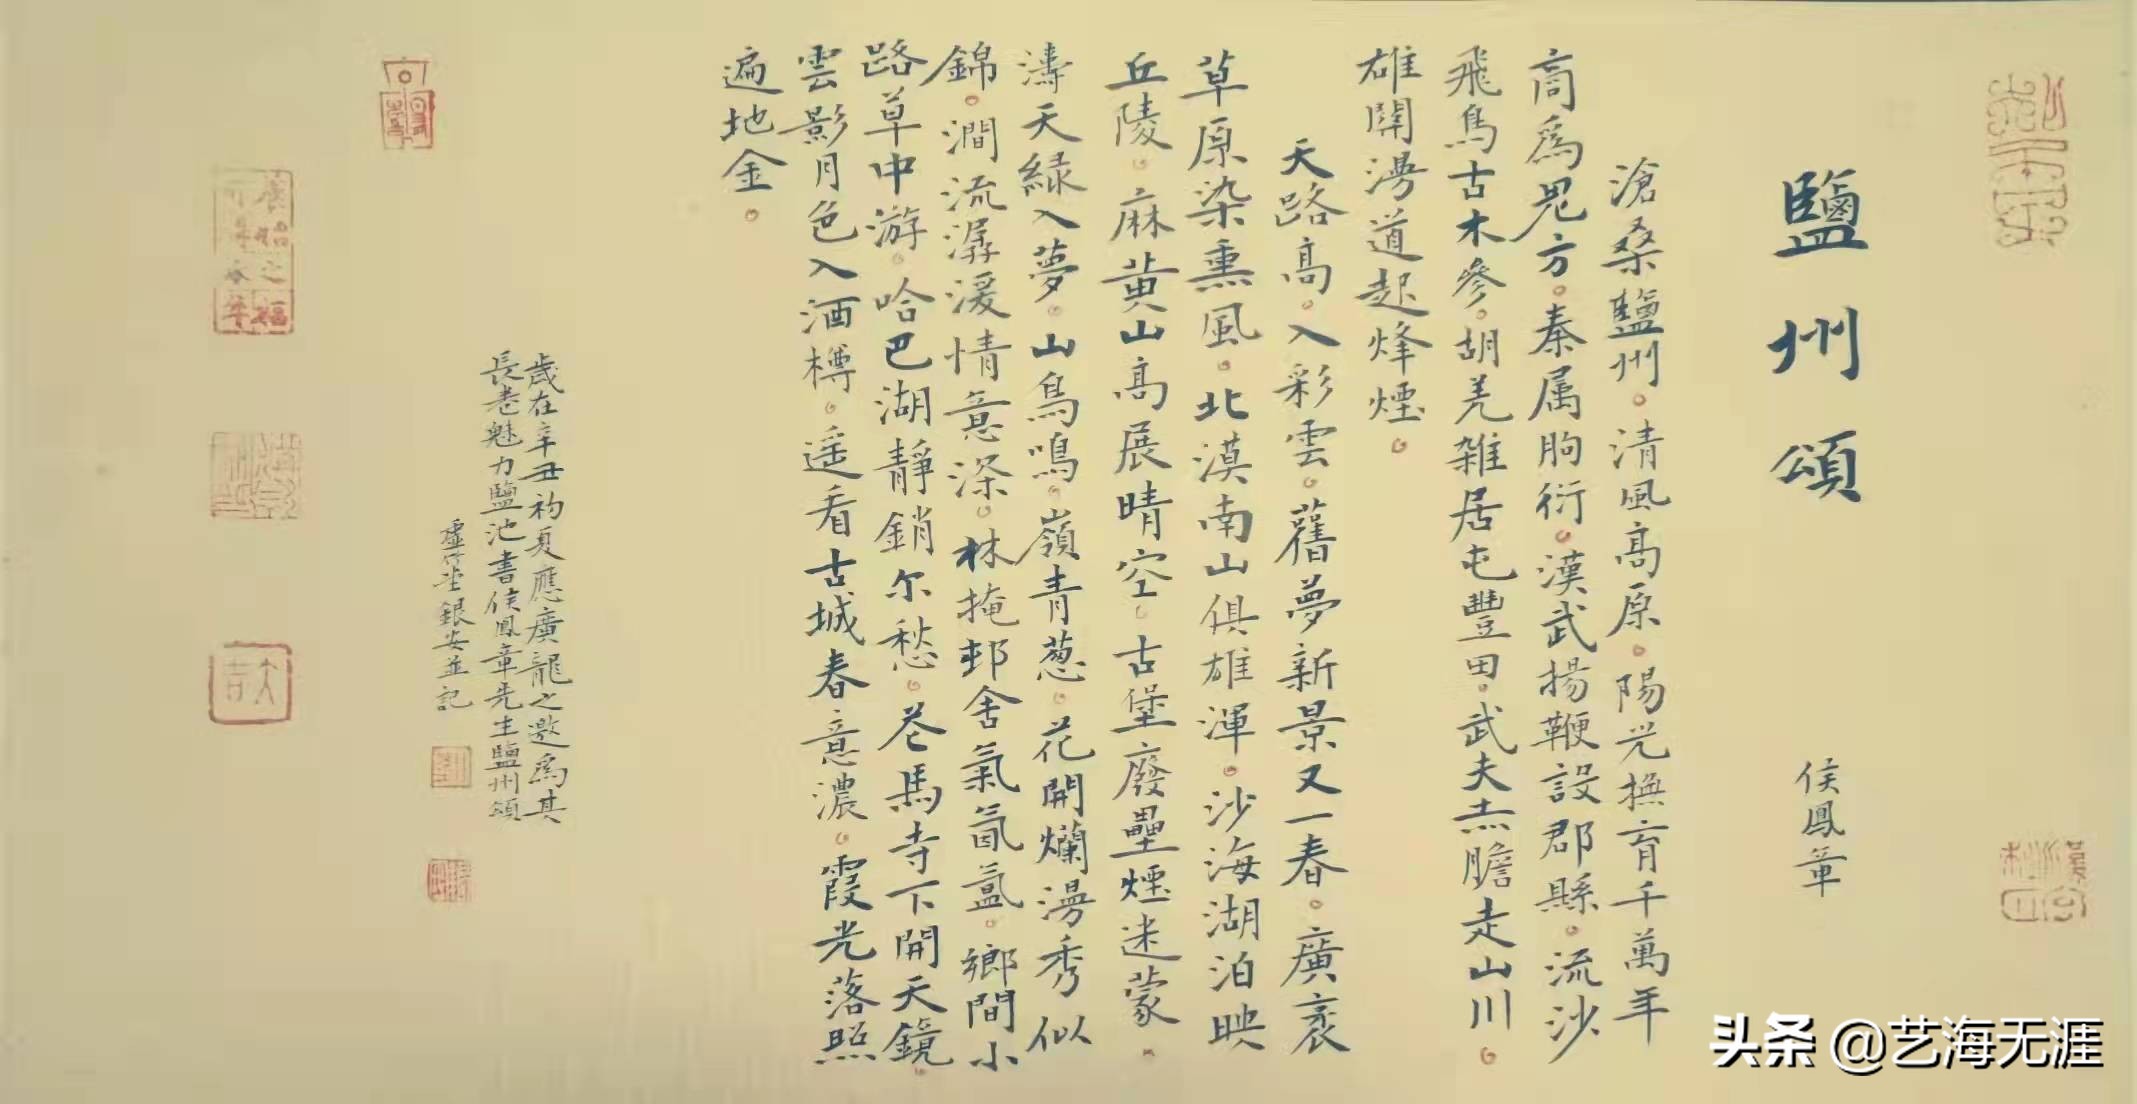 鹽州頌
侯鳳章
滄桑鹽州。清風高原。陽光撫育千萬年
高為鬼方。秦属朐衍。漢武揚鞭設郡縣。流沙
飛鳥古木參。胡羌雜居屯豐田。武夫赤膽走山川。
雄關漫道起烽煙。
天路高。入彩雲。舊夢新景又一春。廣袤
草原染熏風。北漠南山俱雄渾。沙海湖泊映
丘陵。麻黄山高展晴空。古堡廢壘煙迷蒙。
濤天緑入夢。山鳥鳴。嶺青葱。花開爛漫秀似
錦。澗流潺湲情意深。林掩邨舍氣氤氳。鄉間小
路草中游。哈巴湖靜銷尔愁。苍馬寺下開天鏡。
雲影月色入酒樽。遥看古城春意濃。霞光落照
遍地金。
歲在辛丑初夏應廣龍之邀為其
長卷魅力鹽池書侯鳳章先生鹽州頌
銀安並記
大吉
头条 @艺海无涯